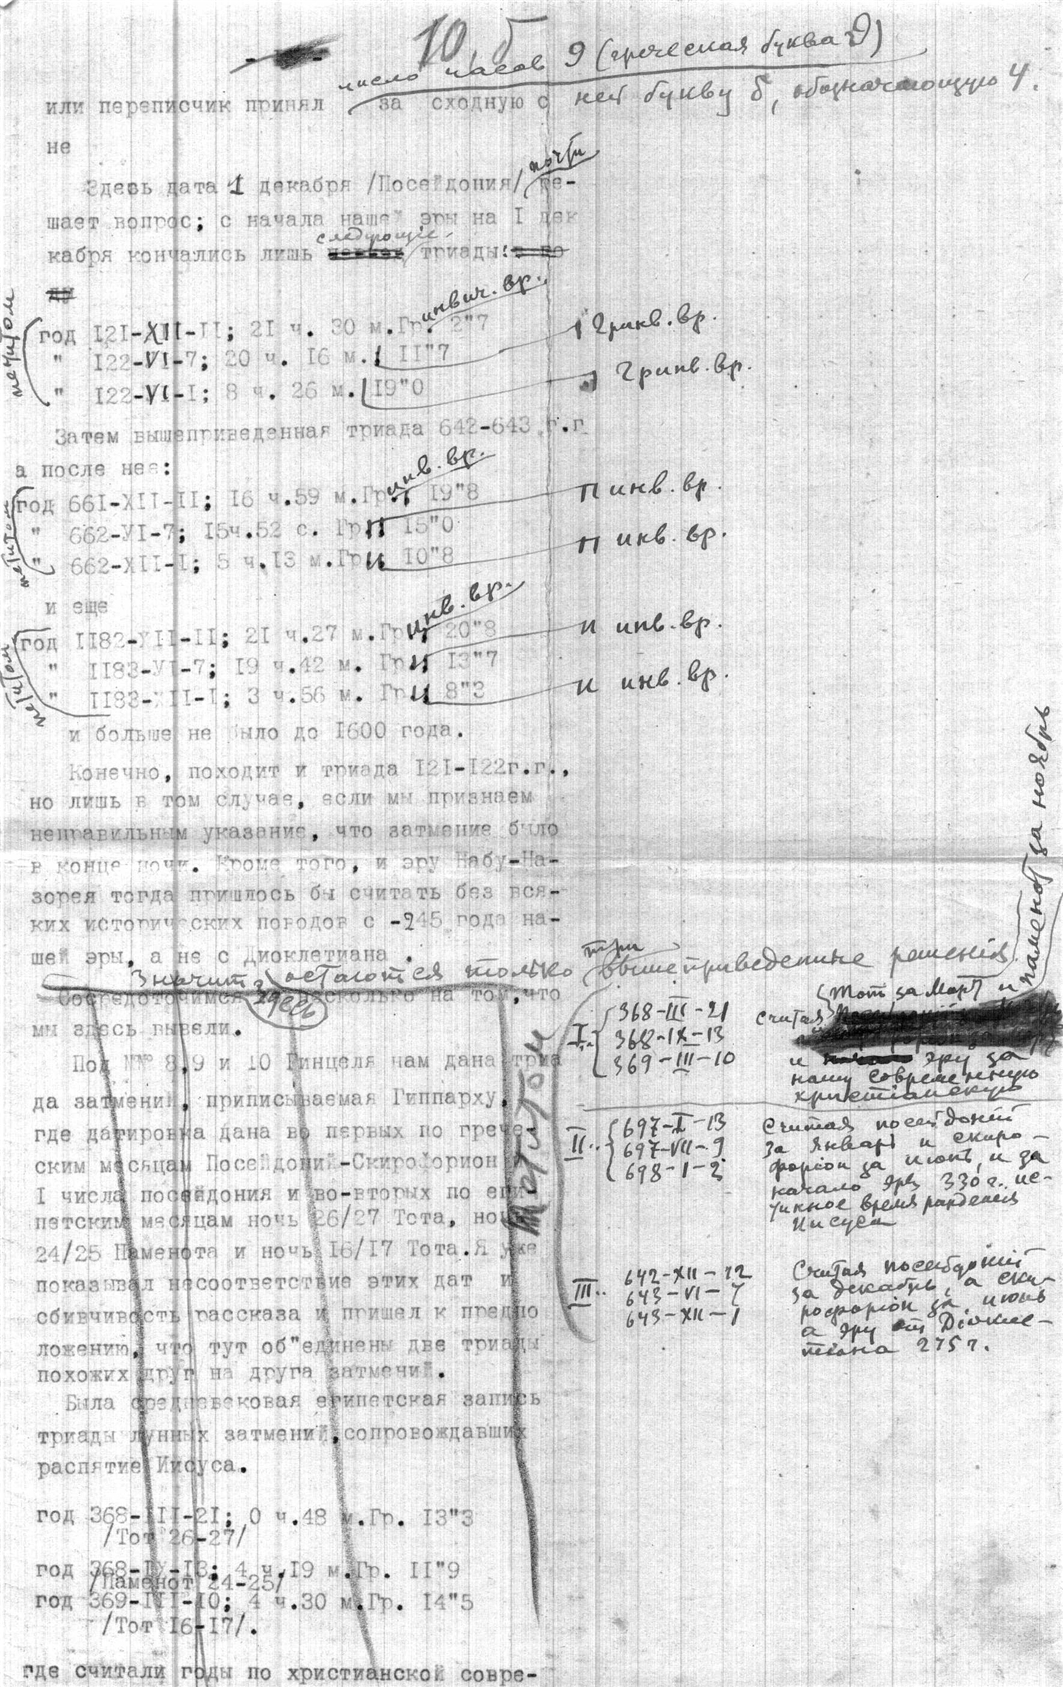 10,б
число часов 9 (греческая буква ϑ)
или переписчик принял за сходную с ней букву δ, обозначающую 4.
не
почти
Здесь дата 1 декабря /Посейдония/ ре-
шает вопрос; с начала нашей эры на I дек
следующие
кабря кончались лишь триады:
петитом
год I2I-XII-II; 2I ч. 30 м.Гринвич. вр. 2"7
" I22-VI-7; 20 ч. I6 м. II"7 Гринв. вр.
" I22-VI-I; 8 ч. 26 м. I9"0 Гринв. вр.
Затем вышеприведенная триада 642-643 г.г
а после нея:
петитом
год 66I-XII-II; I6 ч.59 м.Гринв. вр. I9"8
" 662-VI-7; I5ч.52 с. Гр I5"0 инв. вр.
" 662-XII-I; 5 ч.I3 м.Гр I0"8 инв. вр.
и еще
петитом
год II82-XII-II; 2I ч.27 м.Гринв. вр. 20"8
" II83-VI-7; I9 ч.42 м. Гр I3"7 и инв. вр.
" II83-XII-I; 3 ч.56 м. Гр 8"3 и инв. вр.
и больше не было до I600 года.
Конечно, походит и триада I2I-I22г.г.,
но лишь в том случае, если мы признаем
неправильным указание, что затмение было
в конце ночи. Кроме того, и эру Набу-На-
зорея тогда пришлось бы считать без вся-
ких исторических поводов с -245 года на-
шей эры, а не с Диоклетиана .
Значит, остаются только три вышеприведенные решения
Сосредоточимся здесь несколько на том,что
мы здесь вывели.
Под №№ 8,9 и I0 Гинцеля нам дана триа
да затмений, приписываемая Гиппарху,
где датировка дана во первых по грече
ским месяцам Посейдоний-Скирофорион
I числа посейдония и во-вторых по еги
петским месяцам ночь 26/27 Тота, ночь
24/25 Паменота и ночь I6/I7 Тота.Я уже
показывал несоответствие этих дат и
сбивчивость рассказа и пришел к предпо
ложению, что тут об"единены две триады
похожих друг на друга затмений.
Была средневековая египетская запись
триады лунных затмений,сопровождавших
распятие Иисуса.
год 368-III-2I; 0 ч.48 м.Гр. I3"3
/Тот 26-27/
год 368-IX-I3; 4 ч.I9 м.Гр. II"9
/Паменот 24-25/
год 369-III-I0; 4 ч.30 м.Гр. I4"5
/Тот I6-I7/.
где считали годы по христианской совре-
петитом
I. 368-III-21
368-IX-13
369-III-10
считая Тот за Март и Паменот за ноябрь
и эру за
нашу современную
христианскую
II.. 697-I-13
697-VII-9
698-I-2
Считая посейдоний
за Январь и скиро-
форион за июль, и за
начало эры 330 г. ис-
тинное время рождения
Иисуса
III.. 642-XII-12
643-VI-7
643-XII-1
Считая посейдоний
за декабрь, а ски-
рофорион за июнь
а эру от Диокле-
тиана 275 г.